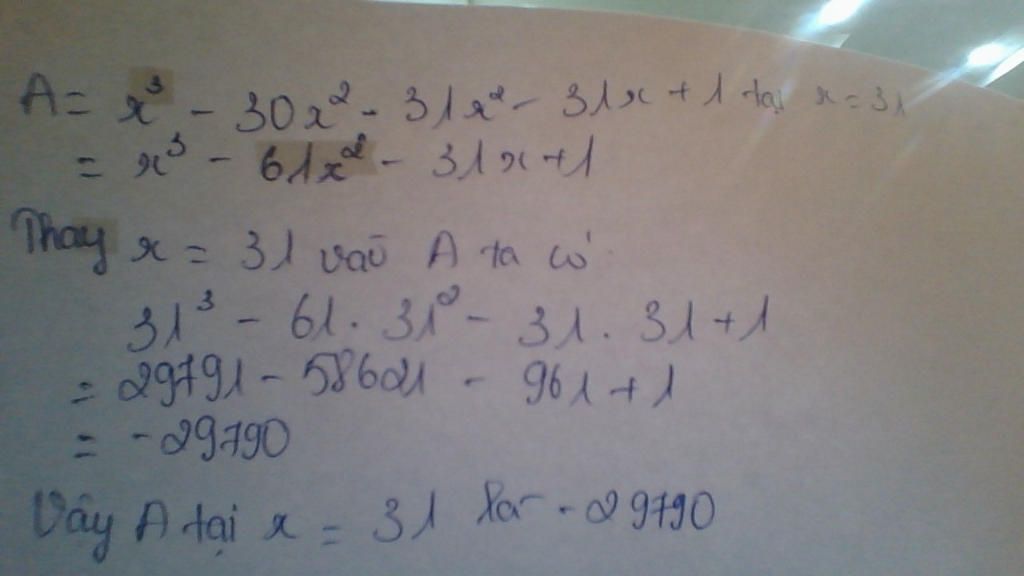 A = x³ - 30x² - 31x² - 31x + 1 tại x = 31
= x³ - 61x² - 31x + 1
Thay x = 31 vào A ta có
31³ - 61. 31² - 31. 31 + 1
= 29791 - 58621 - 961 + 1
= -29790
Vậy A tại x = 31 là -29790